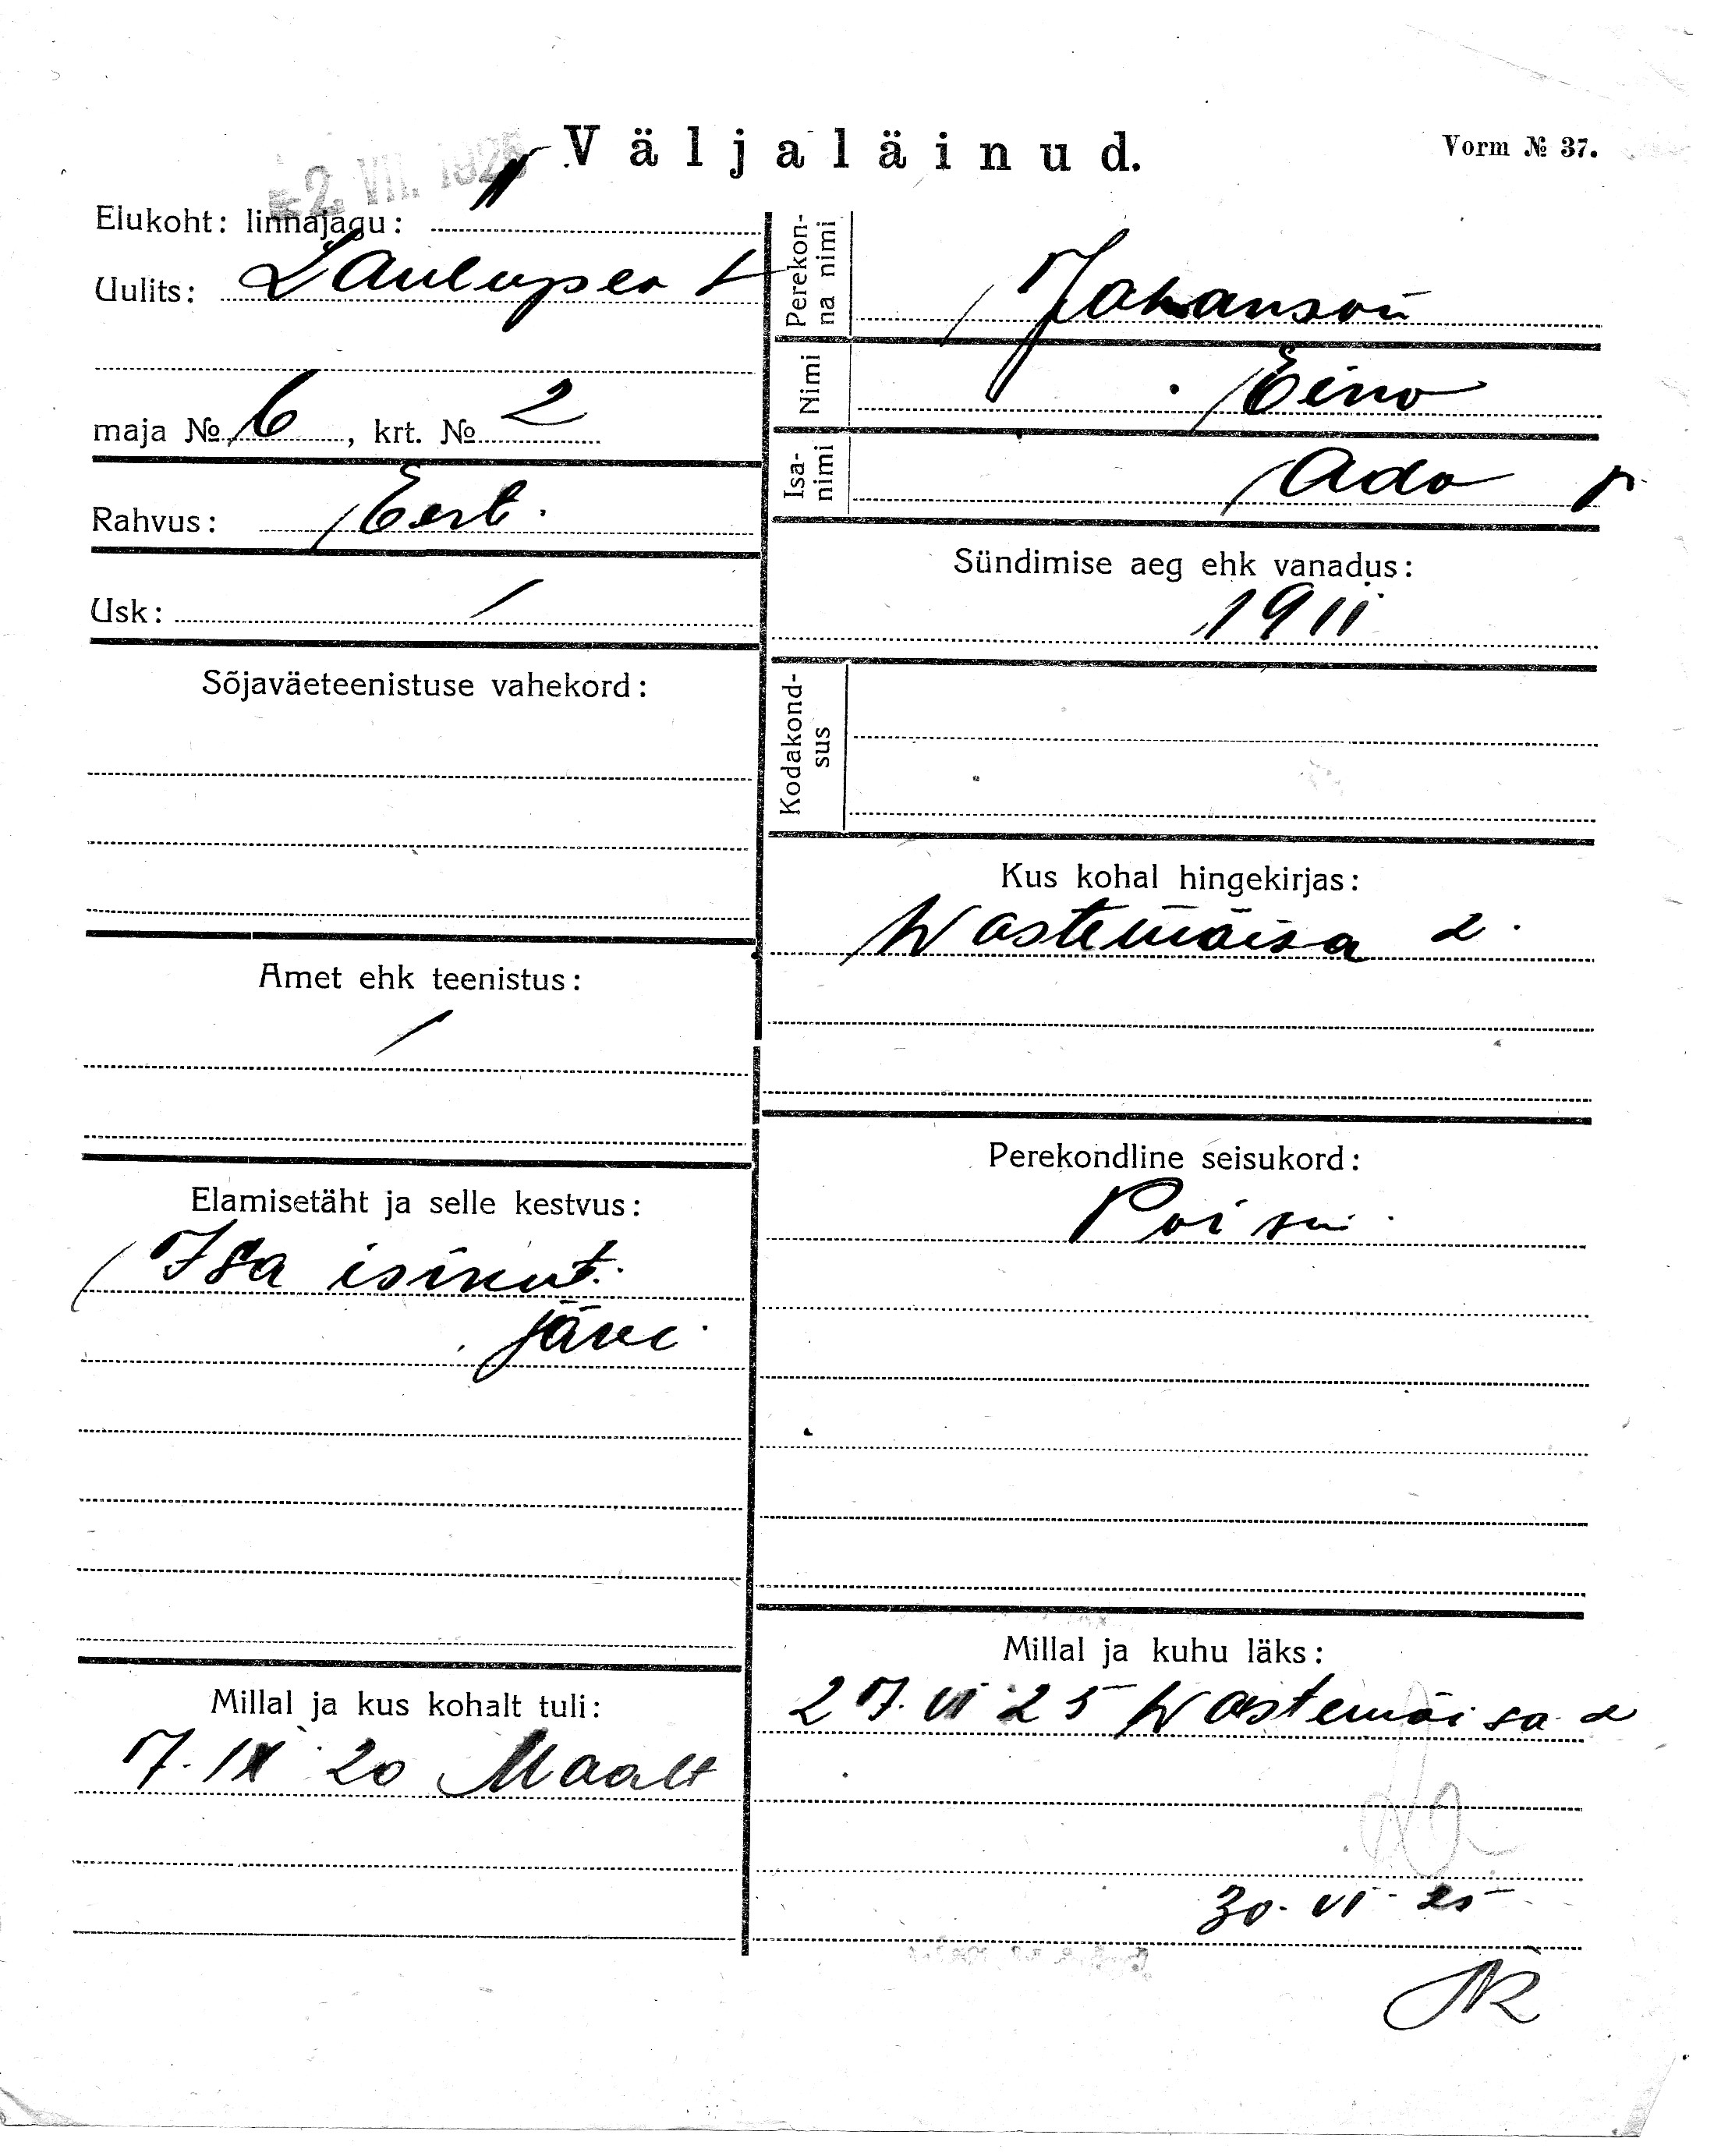 Väljaläinud.
Vorm № 37.
2. VII. 1925
Elukoht: linnajagu:
Uulits: Laulupea t
maja № 6, krt. № 2
Rahvus: Eest.
Usk: /
Sõjaväeteenistuse vahekord:
Amet ehk teenistus:
/
Elamisetäht ja selle kestvus:
Isa isikut.
järe.
Millal ja kus kohalt tuli:
7. IX 20 Maalt
Perekonna nimi
Johanson
Nimi
Eino
Isanimi
Ado p.
Sündimise aeg ehk vanadus:
1911
Kodakondsus
Kus kohal hingekirjas:
Wastemõisa v.
Perekondline seisukord:
Poism.
Millal ja kuhu läks:
27. VI 25 Wastemõisa v
30. VI. 25